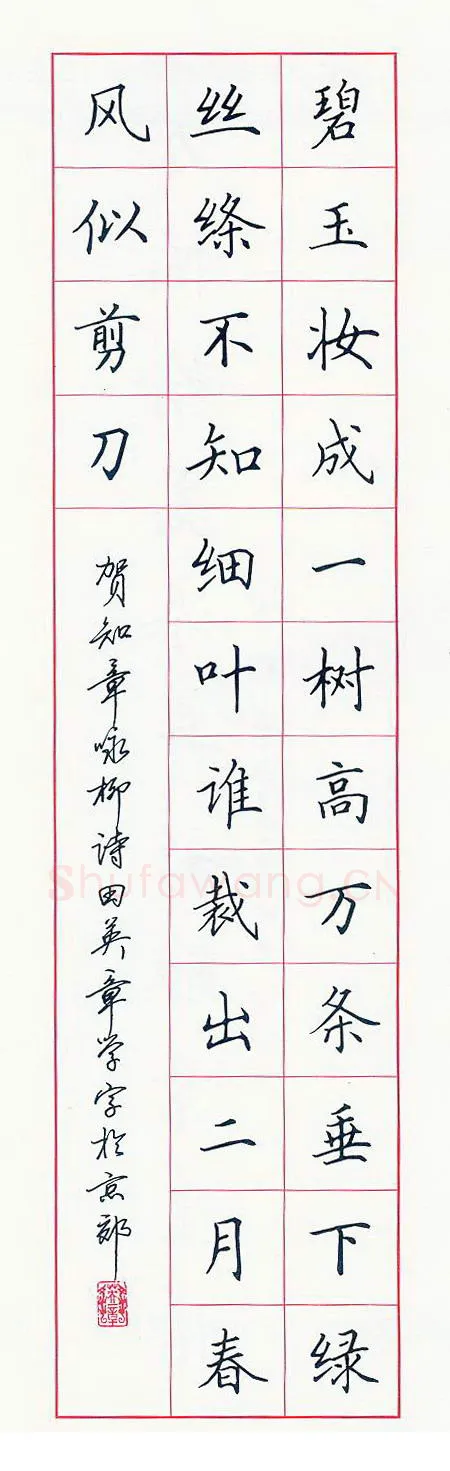 碧玉妆成一树高万条垂下绿
丝绦不知细叶谁裁出二月春
风似剪刀
贺知章咏柳诗田英章学字于京郊
英章
Shufawang.CN